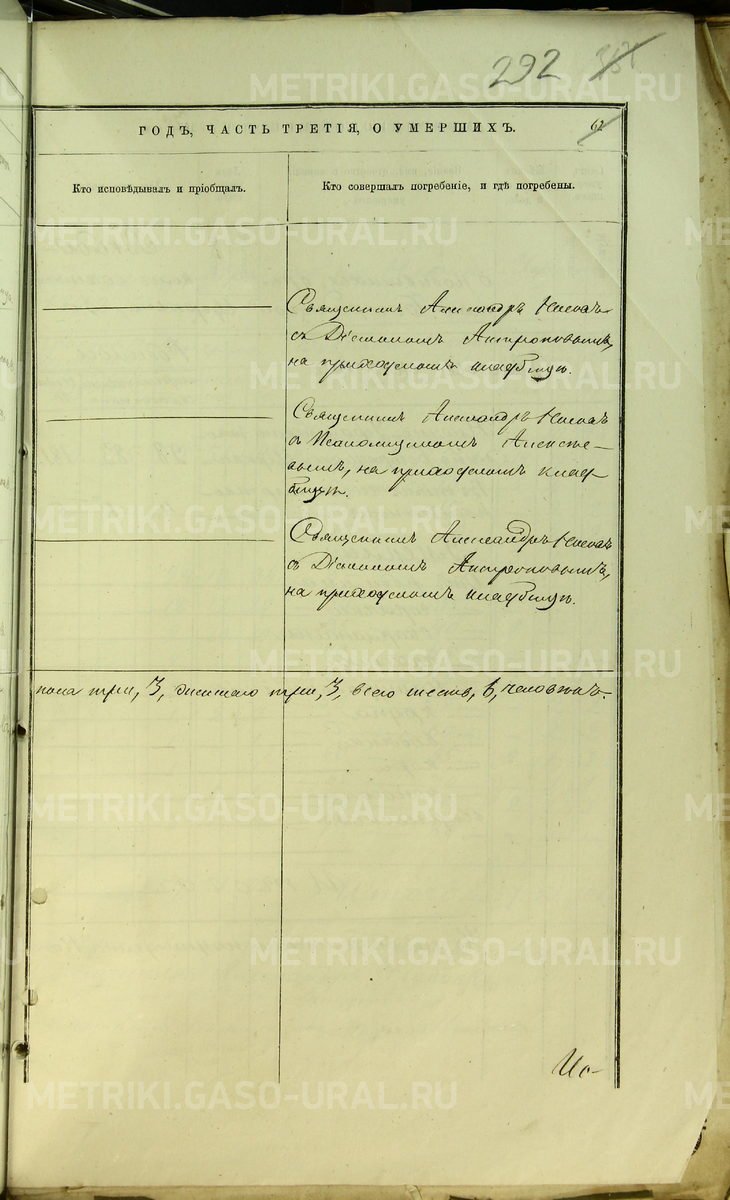 292 357
ГОДЪ, ЧАСТЬ ТРЕТІЯ, О УМЕРШИХЪ. 62
Кто исповѣдывалъ и пріобщалъ.
Кто совершалъ погребеніе, и гдѣ погребены.
Священникъ Александръ
съ Діакономъ Антроповымъ,
на приходскомъ кладбищѣ.
Священникъ Александръ
съ Псаломщикомъ Алексѣе-
вымъ, на приходскомъ клад-
бищѣ.
Священникъ Александръ
съ Діакономъ Антроповымъ,
на приходскомъ кладбищѣ.
пола три, 3, женскаго три, 3, всего шесть, 6, человѣкъ.
Ис-
METRIKI.GASO-URAL.RU